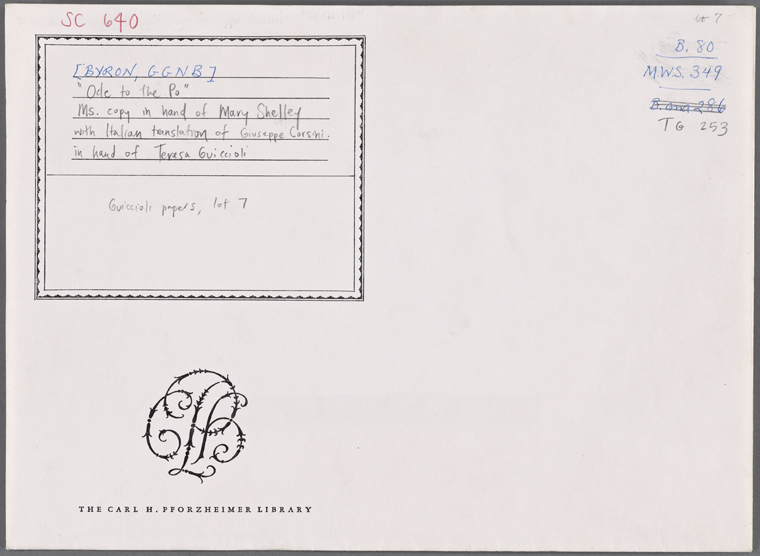 SC 640
lot 7
[BYRON, GGNB]
"Ode to the Po"
Ms. copy in hand of Mary Shelley
with Italian translation of Giuseppe Corsini.
in hand of Teresa Guiccioli
Guiccioli papers, lot 7
B. 80
M.W.S. 349
B. ana 286
TG 253
THE CARL H. PFORZHEIMER LIBRARY